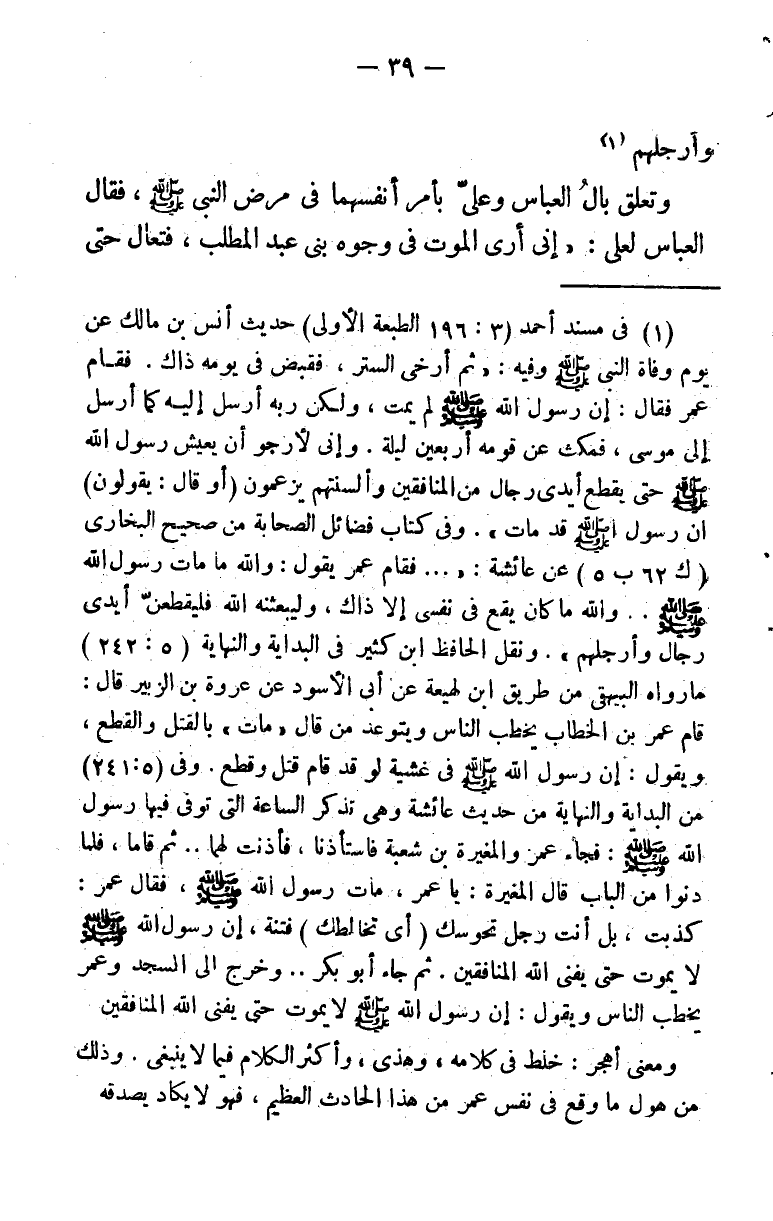 — ٣٩ —
وأرجلهم (١)
وتعلق بالُ العباس وعلىّ بأمر أنفسهما فى مرض النبى ﷺ ، فقال
العباس لعلى : « إنى أرى الموت فى وجوه بنى عبد المطلب ، فتعال حتى
(١) فى مسند أحمد (٣ : ١٩٦ الطبعة الأولى) حديث أنس بن مالك عن
يوم وفاة النبى ﷺ وفيه : « ثم أرخى الستر ، فقبض فى يومه ذاك . فقام
عمر فقال : إن رسول الله ﷺ لم يمت ، ولكن ربه أرسل إليه كما أرسل
إلى موسى ، فمكث عن قومه أربعين ليلة . وإنى لأرجو أن يعيش رسول الله
ﷺ حتى يقطع أيدى رجال من المنافقين وألسنتهم يزعمون (أو قال : يقولون)
ان رسول الله ﷺ قد مات » . وفى كتاب فضائل الصحابة من صحيح البخارى
( ك ٦٢ ب ٥ ) عن عائشة : « ... فقام عمر يقول : والله ما مات رسول الله
ﷺ .. والله ما كان يقع فى نفسى إلا ذاك ، وليبعثنه الله فليقطعنّ أيدى
رجال وأرجلهم » . ونقل الحافظ ابن كثير فى البداية والنهاية ( ٥ : ٢٤٢ )
مارواه البيهقى من طريق ابن لهيعة عن أبى الأسود عن عروة بن الزبير قال :
قام عمر بن الخطاب يخطب الناس ويتوعد من قال « مات » بالقتل والقطع ،
ويقول : إن رسول الله ﷺ فى غشية لو قد قام قتل وقطع . وفى (٥:٢٤١)
من البداية والنهاية من حديث عائشة وهى تذكر الساعة التى توفى فيها رسول
الله ﷺ : فجاء عمر والمغيرة بن شعبة فاستأذنا ، فأذنت لهما .. ثم قاما ، فلما
دنوا من الباب قال المغيرة : يا عمر ، مات رسول الله ﷺ ، فقال عمر :
كذبت ، بل أنت رجل تحوسك ( أى تخالطك ) فتنة ، إن رسول الله ﷺ
لا يموت حتى يفنى الله المنافقين . ثم جاء أبو بكر .. وخرج الى السجد وعمر
يخطب الناس ويقول : إن رسول الله ﷺ لا يموت حتى يفنى الله المنافقين
ومعنى أهجر : خلط فى كلامه ، وهذى ، وأكثر الكلام فيما لا ينبغى . وذلك
من هول ما وقع فى نفس عمر من هذا الحادث العظيم ، فهو لا يكاد يصدقه